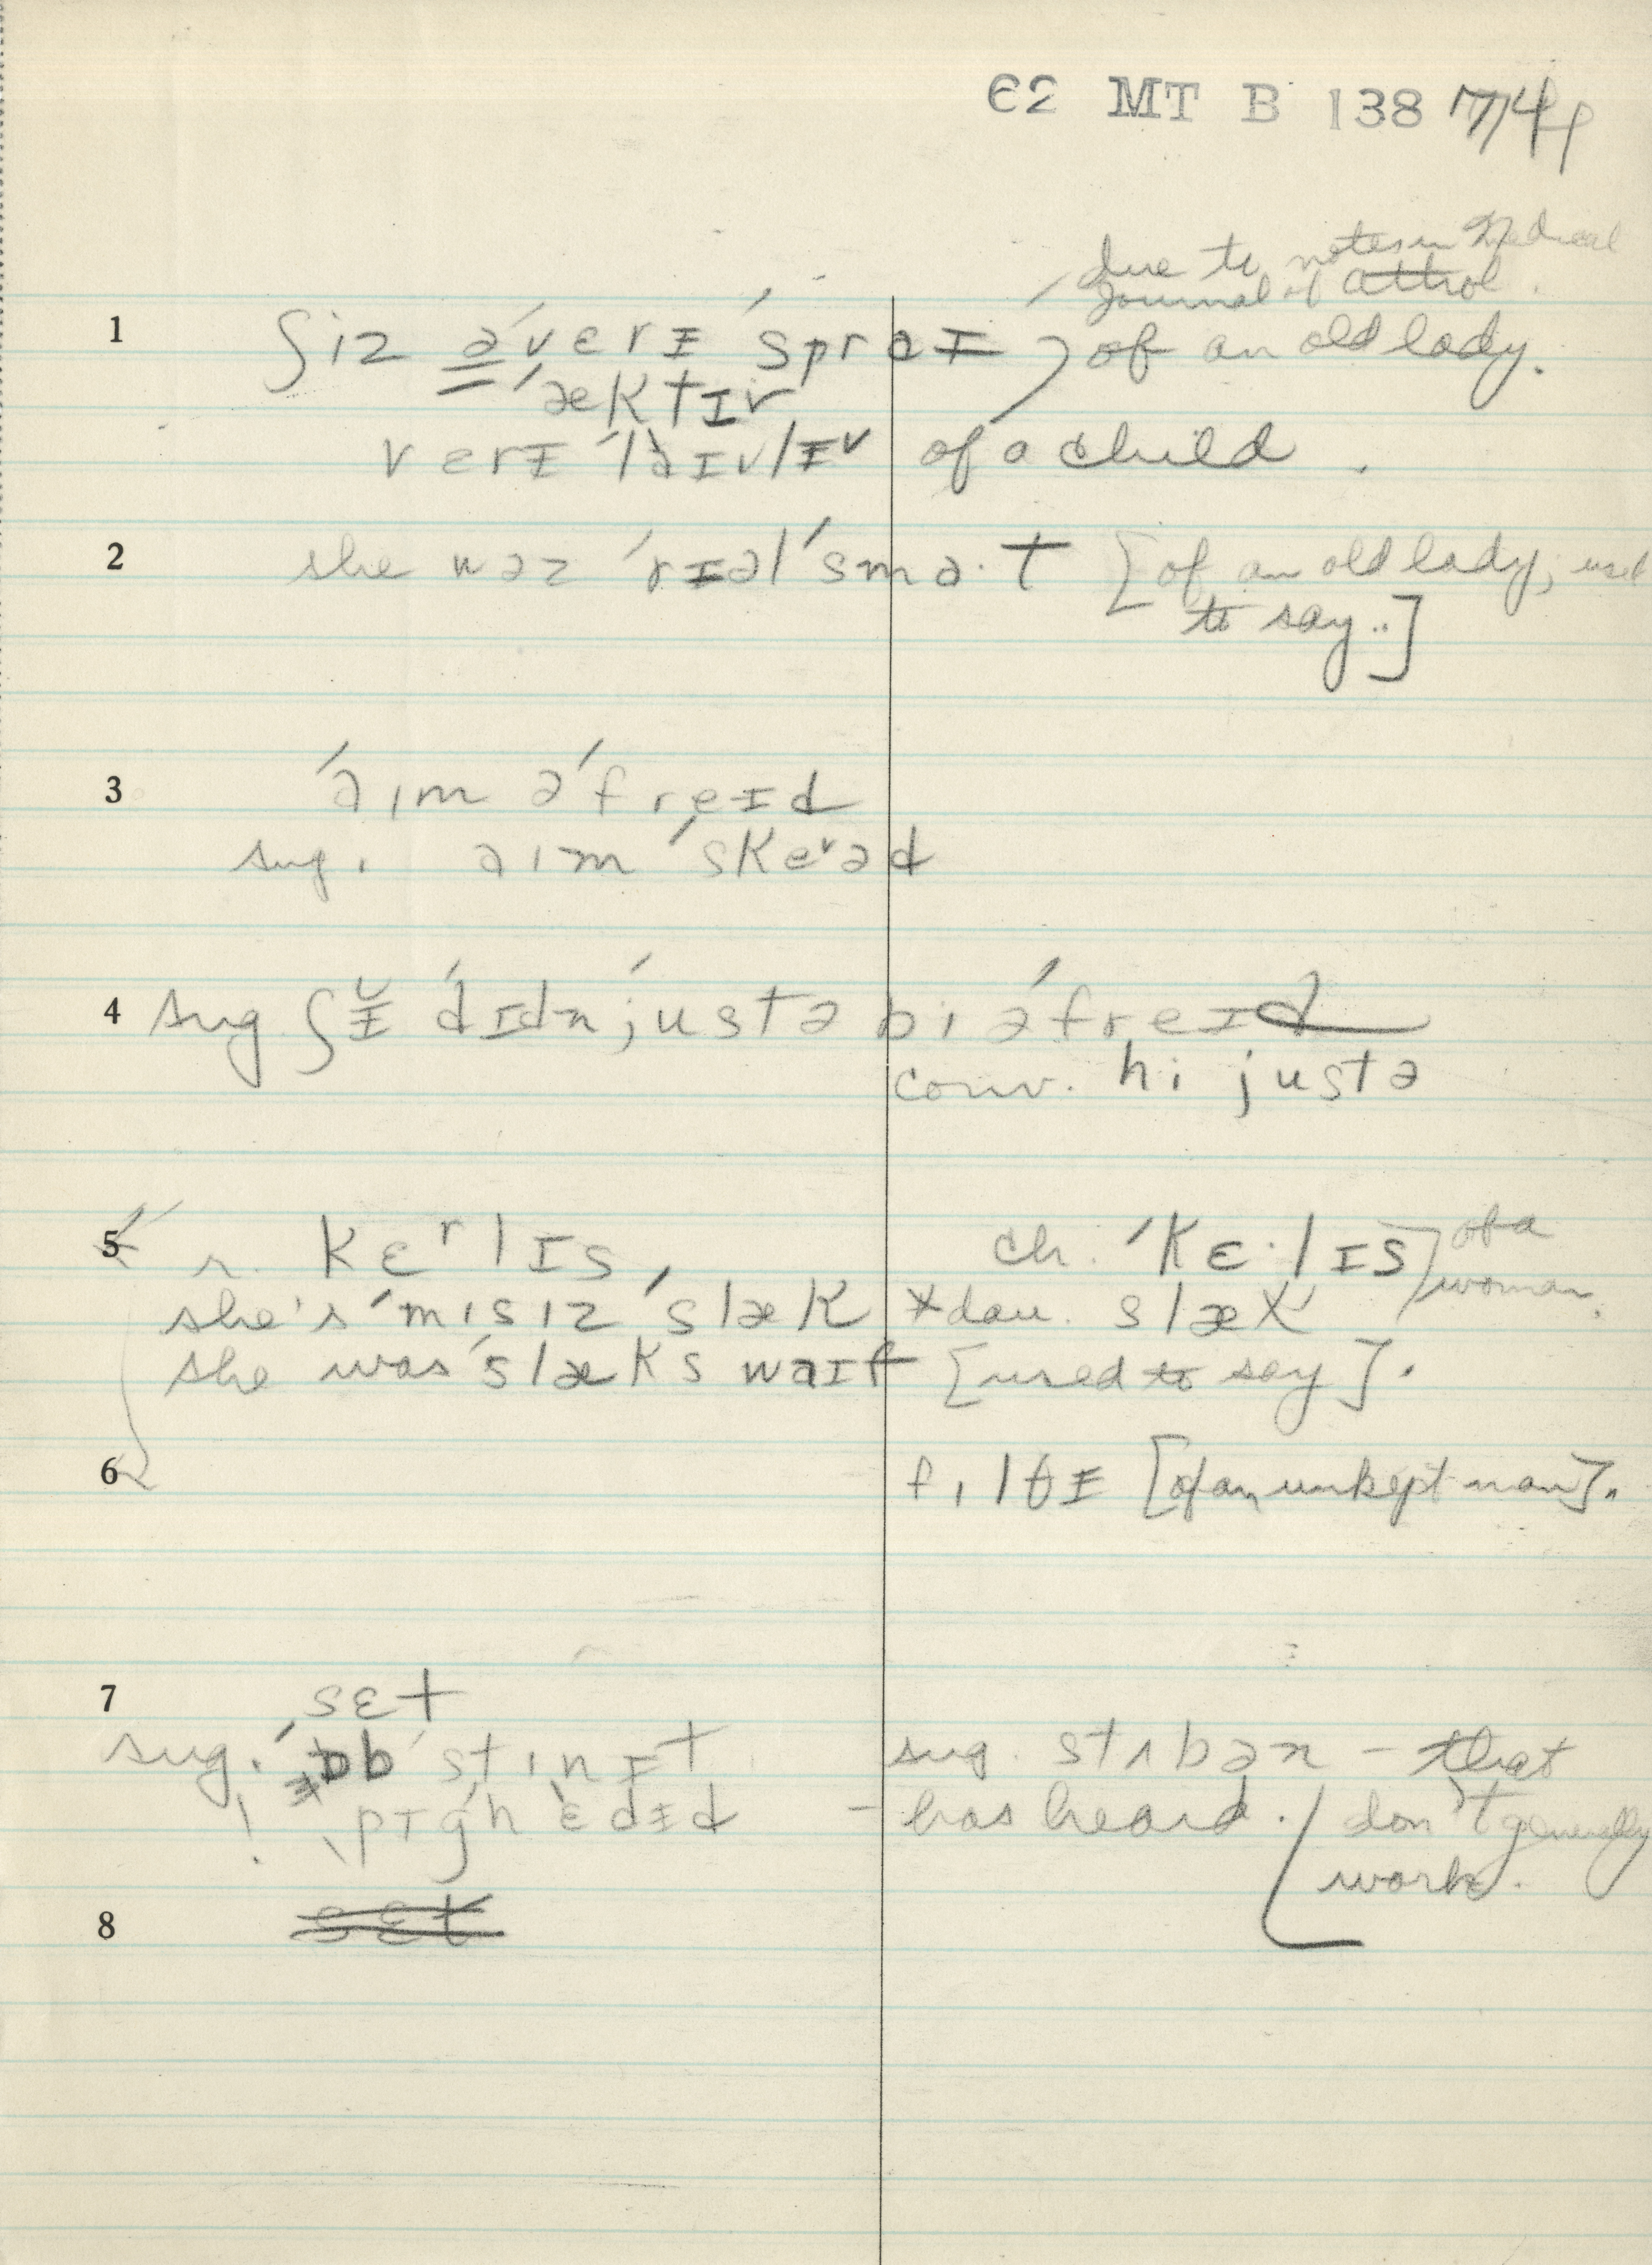 62 MT B 138 74
due to notes in Medical
Journal of Attrol.
1 ʃiz ə ˈverɨ ˈspraɨ of an old lady.
ˈæktɪv
verɨ ˈlaɪvlɨ of a child.
2 she wəz ˈrɪəl ˈsma·t [of an old lady; used
to say..]
3 ˈaim əˈfreɪd
sug. aim ˈskeəd
4 sug ʃɨ ˈdɪdn ˈjustə bi əˈfreɪd
conv. hi justə
5 r. kɛrlɪs, ch. ˈkɛ·lɪs] of a
woman.
she's ˈmisiz ˈslæk *dau. slæk
she was ˈslæks waɪf [used to say].
6 filθɨ [of an unkept man].
7 sɛt
sug. ˈɒbstinɪt sug. stʌbən – that
! pɪghɛdɨd – has heard. don't generally
work.
8 sɛt